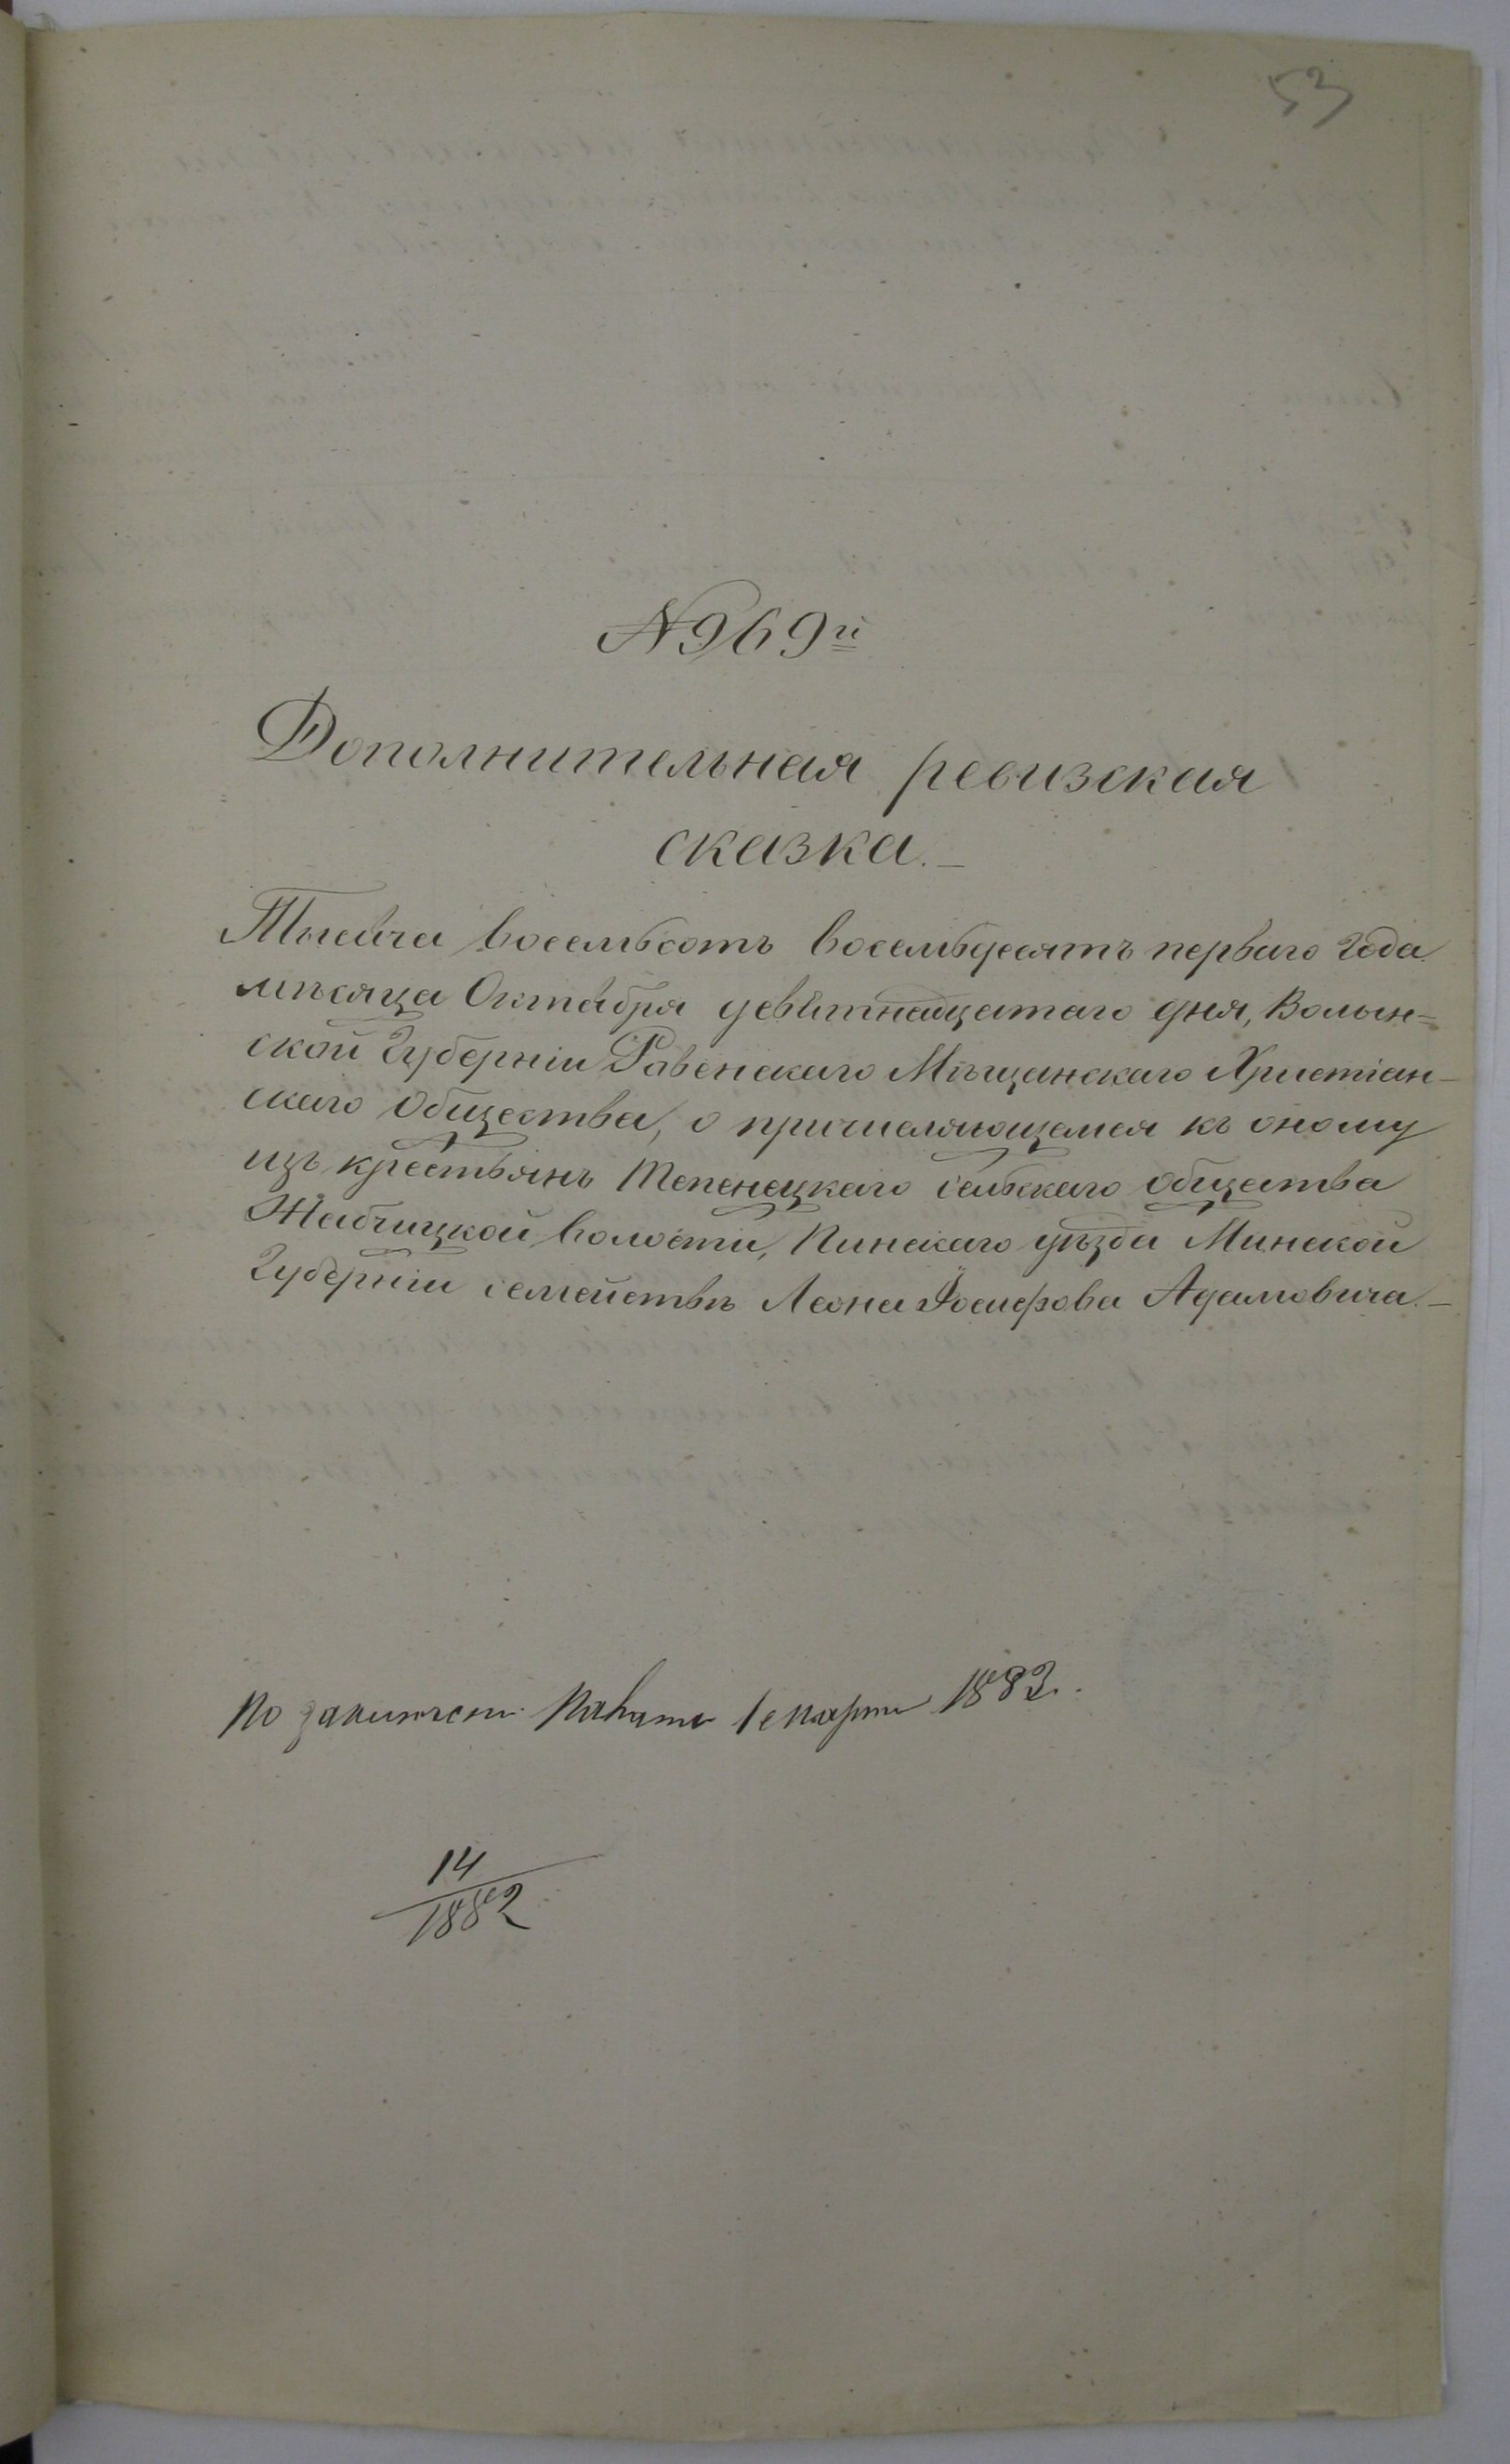 53
№ 969й
Дополнительная ревизская
сказка.—
Тысяча восемьсотъ восемьдесятъ перваго года
мѣсяца Октября девятнадцатаго дня, Волын=
ской Губерніи Ровенскаго Мѣщанскаго Христіан-
скаго Общества, о причисляющемся къ оному
изъ крестьянъ Тепенецкаго сельскаго общества
Жабчицкой волости, Пинскаго уѣзда Минской
Губерніи семействѣ Леона Іосифова Адамовича.—
По 1883.
14
1882